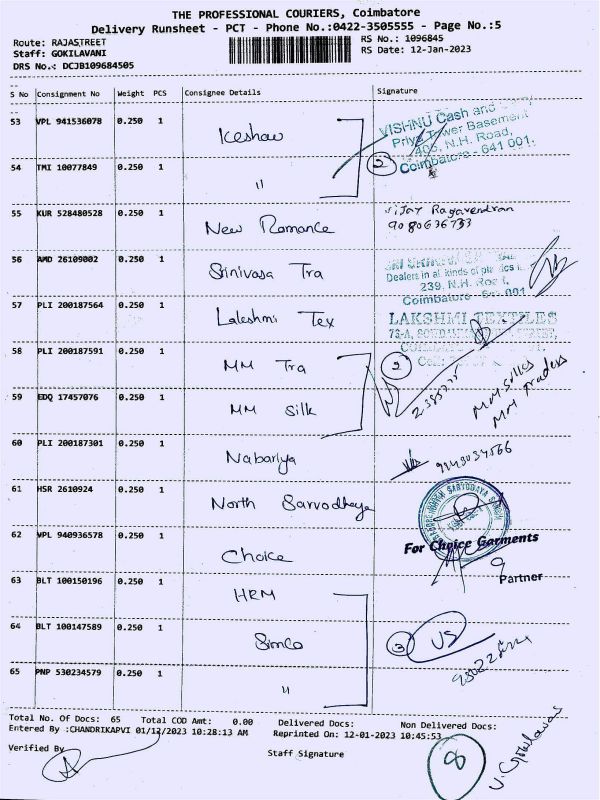 THE PROFESSIONAL COURIERS, Coimbatore
Delivery Runsheet - PCT - Phone No.:0422-3505555 - Page No.:5
Route: RAJASTREET
Staff: GOKILAVANI
DRS No.: DCJB109684505
RS No.: 1096845
RS Date: 12-Jan-2023
S No Consignment No Weight PCS Consignee Details Signature
53 VPL 941536078 0.250 1 Keshav
VISHNU Cash and Carry
Priya Tower Basement
405, N.H. Road,
Coimbatore - 641 001.
2
54 TMI 10077849 0.250 1 "
55 KUR 528480528 0.250 1 New Romance
Vijay Ragavendran
9080636733
56 AMD 26109002 0.250 1 Srinivasa Tra
SRI
Dealers in all kinds of plastics
239, N.H. Road,
Coimbatore - 641 001
57 PLI 200187564 0.250 1 Lakshmi Tex
LAKSHMI TEXTILES
58 PLI 200187591 0.250 1 MM Tra
2
MM Silks
MM Traders
59 EDQ 17457076 0.250 1 MM Silk
60 PLI 200187301 0.250 1 Nabariya
61 HSR 2610924 0.250 1 North Sarvodhaya
62 VPL 940936578 0.250 1 Choice
For Choice Garments
Partner
63 BLT 100150196 0.250 1 HRM
64 BLT 100147589 0.250 1 Simco
3
65 PNP 530234579 0.250 1 "
Total No. Of Docs: 65 Total COD Amt: 0.00 Delivered Docs: Non Delivered Docs:
Entered By :CHANDRIKAPVI 01/12/2023 10:28:13 AM Reprinted On: 12-01-2023 10:45:53
Verified By
Staff Signature
8
V. Gokilavani